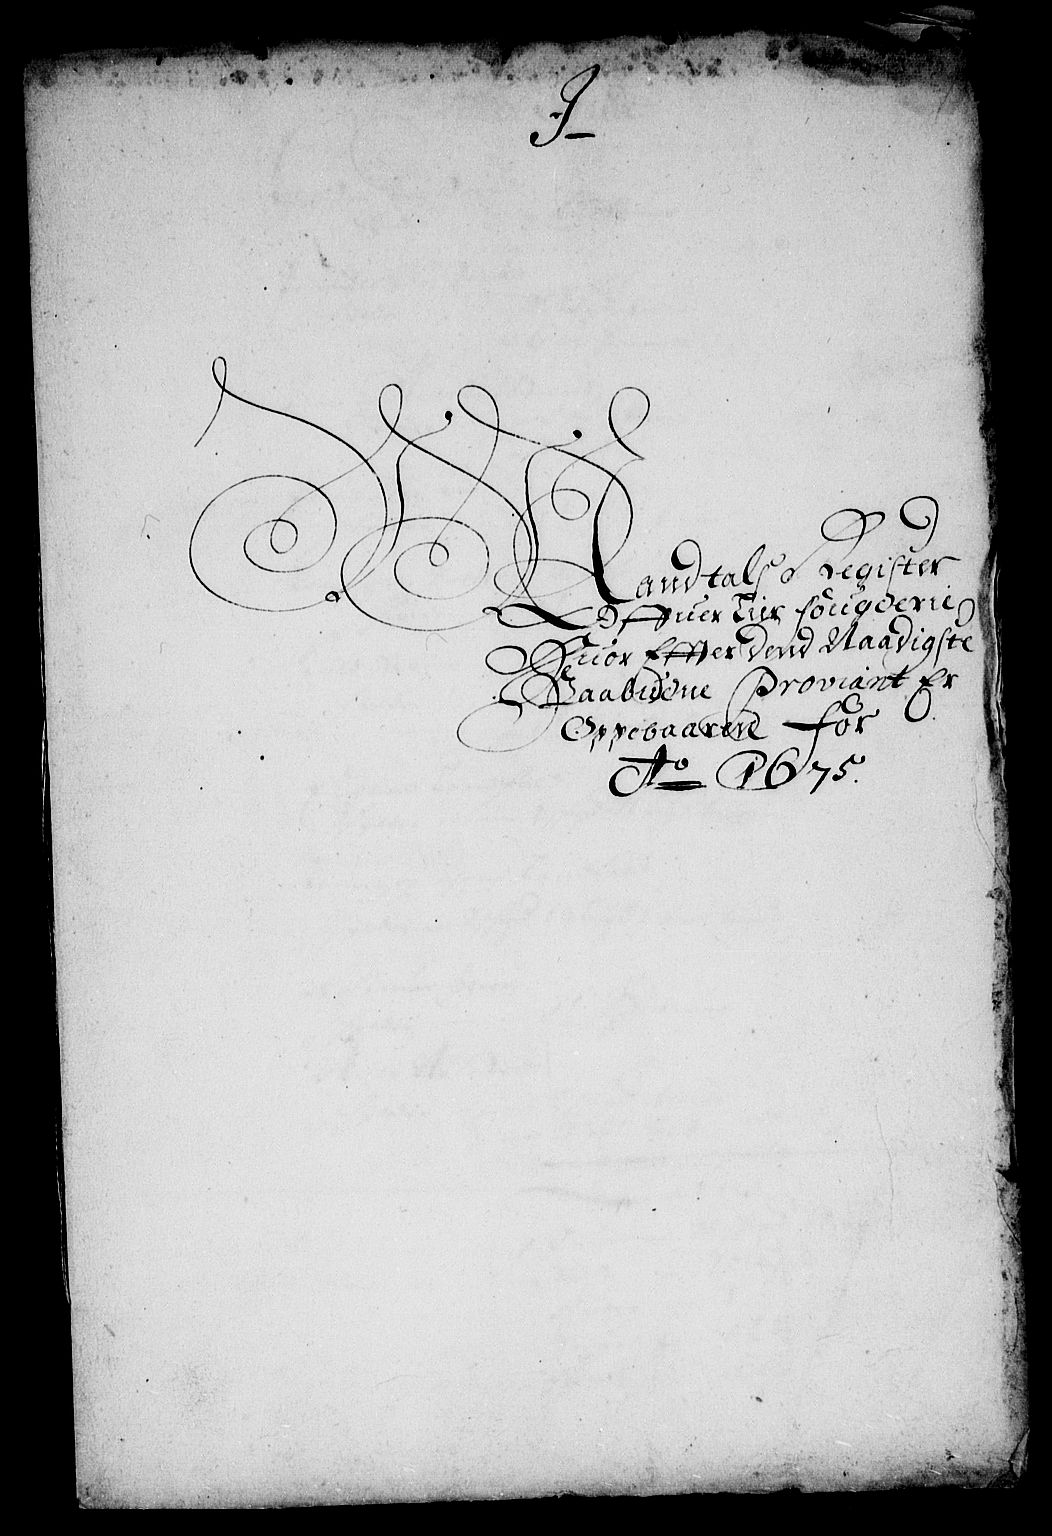 J
Mandtals Register
Offuer Lier fougderie
Huor Effter dend Naadigste
Paabudene Proviant Er
Oppebaaren for
Ao 1675.